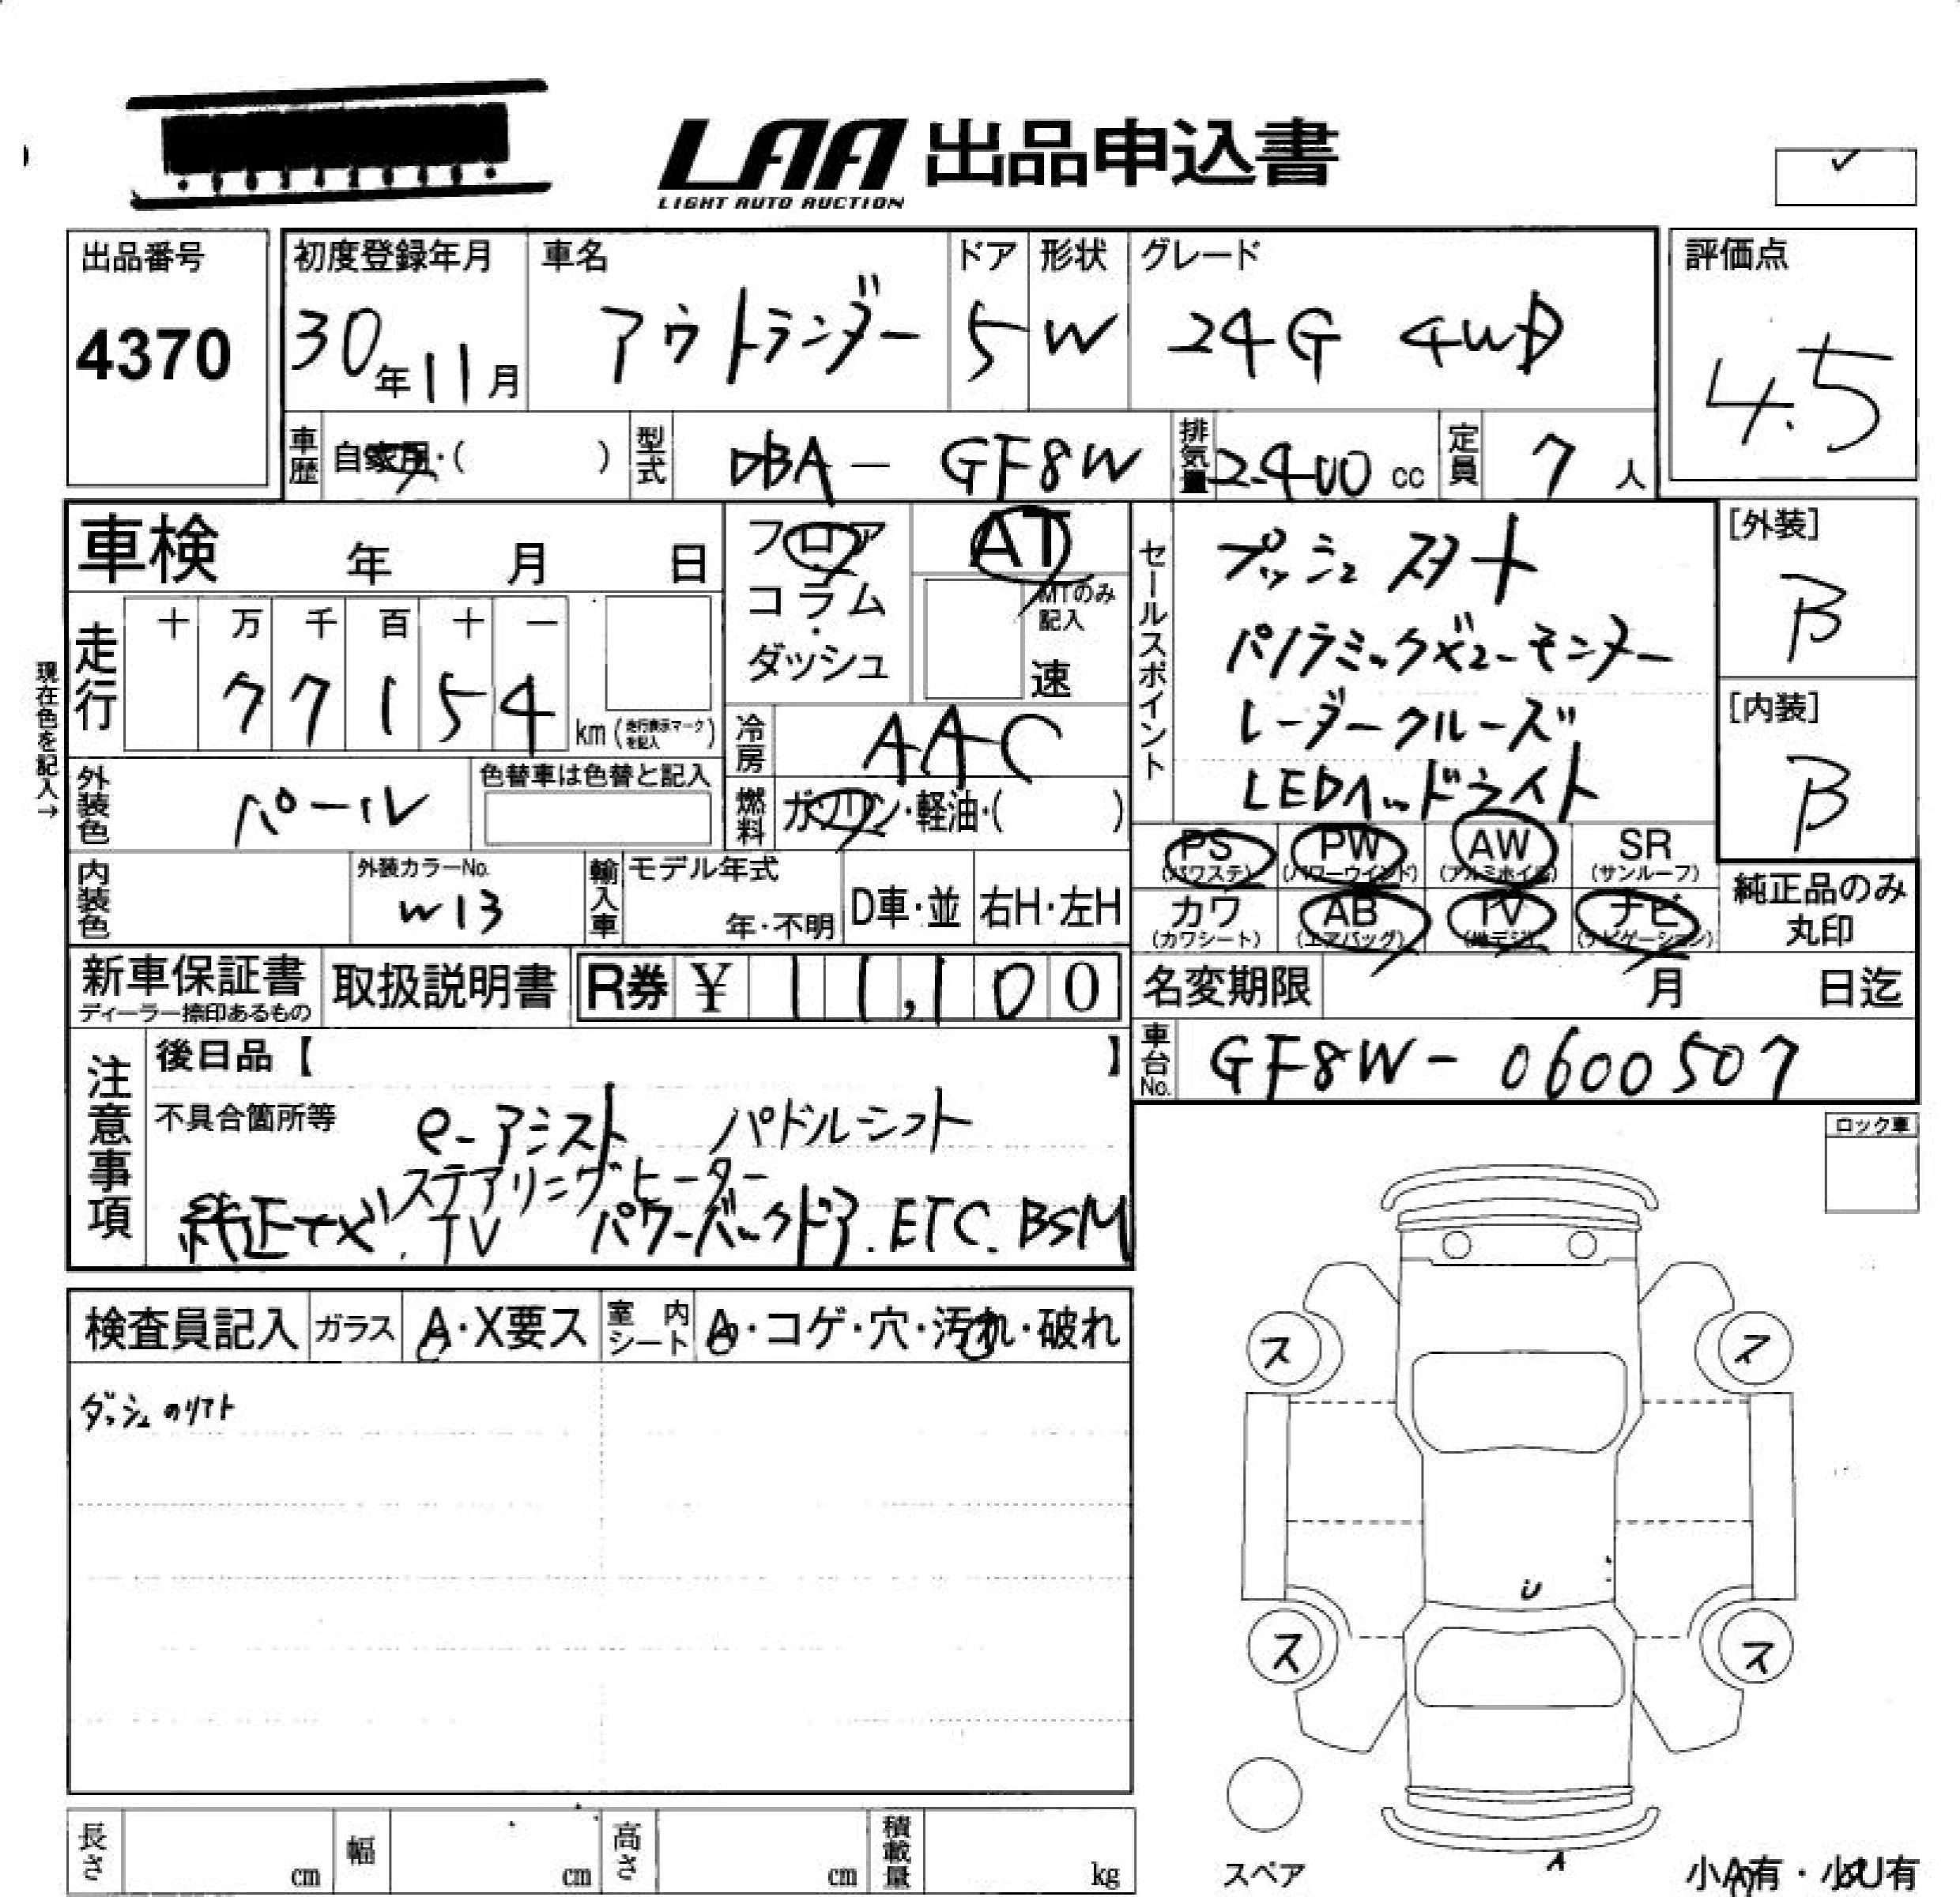 LAA 出品申込書
LIGHT AUTO AUCTION
出品番号
4370
初度登録年月
30年11月
車名
アウトランダー
ドア
5
形状
W
グレード
24G 4WD
評価点
4.5
車歴 自家用・( )
型式 DBA-GF8W
排気量 2400 cc
定員 7人
車検 年 月 日
走行
十 万 千 百 十 一
77154
km (走行表示マークを記入)
現在色を記入→
フロア
コラム
・
ダッシュ
AT
MTのみ記入
速
冷房 AAC
燃料 ガソリン・軽油・( )
セールスポイント
プッシュスタート
パノラミックビューモニター
レーダークルーズ
LEDヘッドライト
[外装]
B
[内装]
B
外装色 パール
色替車は色替と記入
内装色
外装カラーNo.
W13
輸入車
モデル年式
年・不明
D車・並
右H・左H
PS (パワステ)
PW (パワーウインド)
AW (アルミホイル)
SR (サンルーフ)
カワ (カワシート)
AB (エアバッグ)
TV (地デジ)
ナビ (ナビゲーション)
純正品のみ
丸印
新車保証書
ディーラー捺印あるもの
取扱説明書
R券 ¥ 11,100
名変期限 月 日迄
車台No. GF8W-0600507
注意事項
後日品【 】
不具合箇所等
e-アシスト パドルシフト
ステアリングヒーター
純正ナビ.TV パワーバックドア.ETC.BSM
ロック車
検査員記入
ガラス A・X要ス
室内シート A・コゲ・穴・汚れ・破れ
ス ス
U
ス ス
スペア
A
小A有・小U有
長さ cm
幅 cm
高さ cm
積載量 kg